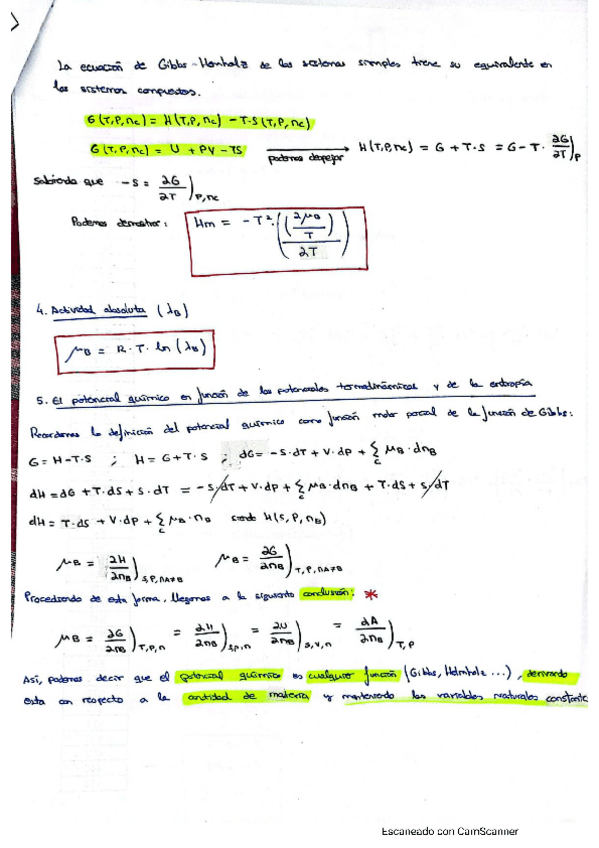 La ecuación de Gibbs-Hemholz de los sistemas simples tiene su equivalente en
los sistemas compuestos.
G(T,P,nc) = H(T,P,nc) - T·S(T,P,nc)
G(T,P,nc) = U + PV - TS podemos despejar → H(T,P,nc) = G + T·S = G - T · ∂G/∂T)P
Sabiendo que -S = ∂G/∂T)P,nc
Podemos demostrar: Hm = -T²·((∂μB/T)/∂T)
4. Actividad absoluta (λB)
μB = R·T·ln(λB)
5. El potencial químico en función de los potenciales termodinámicos y de la entropía
Recordemos la definición del potencial químico como función molar parcial de la función de Gibbs:
G = H-T·S ; H = G+T·S ; dG = -S·dT + V·dP + Σc μB·dnB
dH = dG + T·dS + S·dT = -S·dT + V·dP + Σc μB·dnB + T·dS + S·dT
dH = T·dS + V·dP + Σc μB·nB siendo H(S,P,nB)
μB = ∂H/∂nB)S,P,nA≠B μB = ∂G/∂nB)T,P,nA≠B
Procediendo de esta forma, llegamos a la siguiente conclusión: *
μB = ∂G/∂nB)T,P,n = ∂H/∂nB)S,P,n = ∂U/∂nB)S,V,n = ∂A/∂nB)T,P
Así, podemos decir que el potencial químico es cualquier función (Gibbs, Helmholz ...), derivando
esta con respecto a la cantidad de materia y manteniendo las variables naturales constante
Escaneado con CamScanner